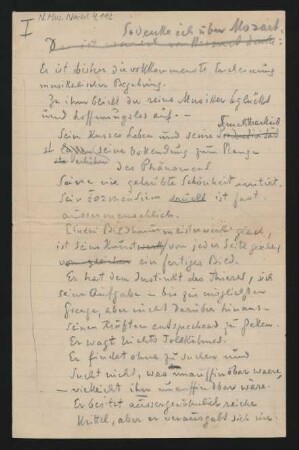 N. Mus. Nachl. 4, 112
I
So denke ich über Mozart:
Er ist bisher die vollkommenste Erscheinung
musikalischer Begabung.
Zu ihm blickt der reine Musiker beglückt
und hoffnungslos auf. -
Sein kurzes Leben und seine Fruchtbarkeit
erhöhen seine Vollendung zum Range
des Phänomens.
Seine nie getrübte Schönheit irritiert.
Sein Formensinn ist fast
aussermenschlich.
Einem Bildhauermeisterwerke gleich,
ist seine Kunst von jeder Seite gesehen,
ein fertiges Bild.
Er hat den Instinkt des Thieres, sich
seine Aufgabe - bis zur möglichsten
Grenze, aber nicht darüber hinaus -
seinen Kräften entsprechend zu stellen.
Er wagt nichts Tollkühnes.
Er findet ohne zu suchen und
sucht nicht, was unauffindbar wäre,
- vielleicht ihm unauffindbar wäre.
Er besitzt aussergewöhnlich reiche
Mittel, aber er verausgabt sich nie.